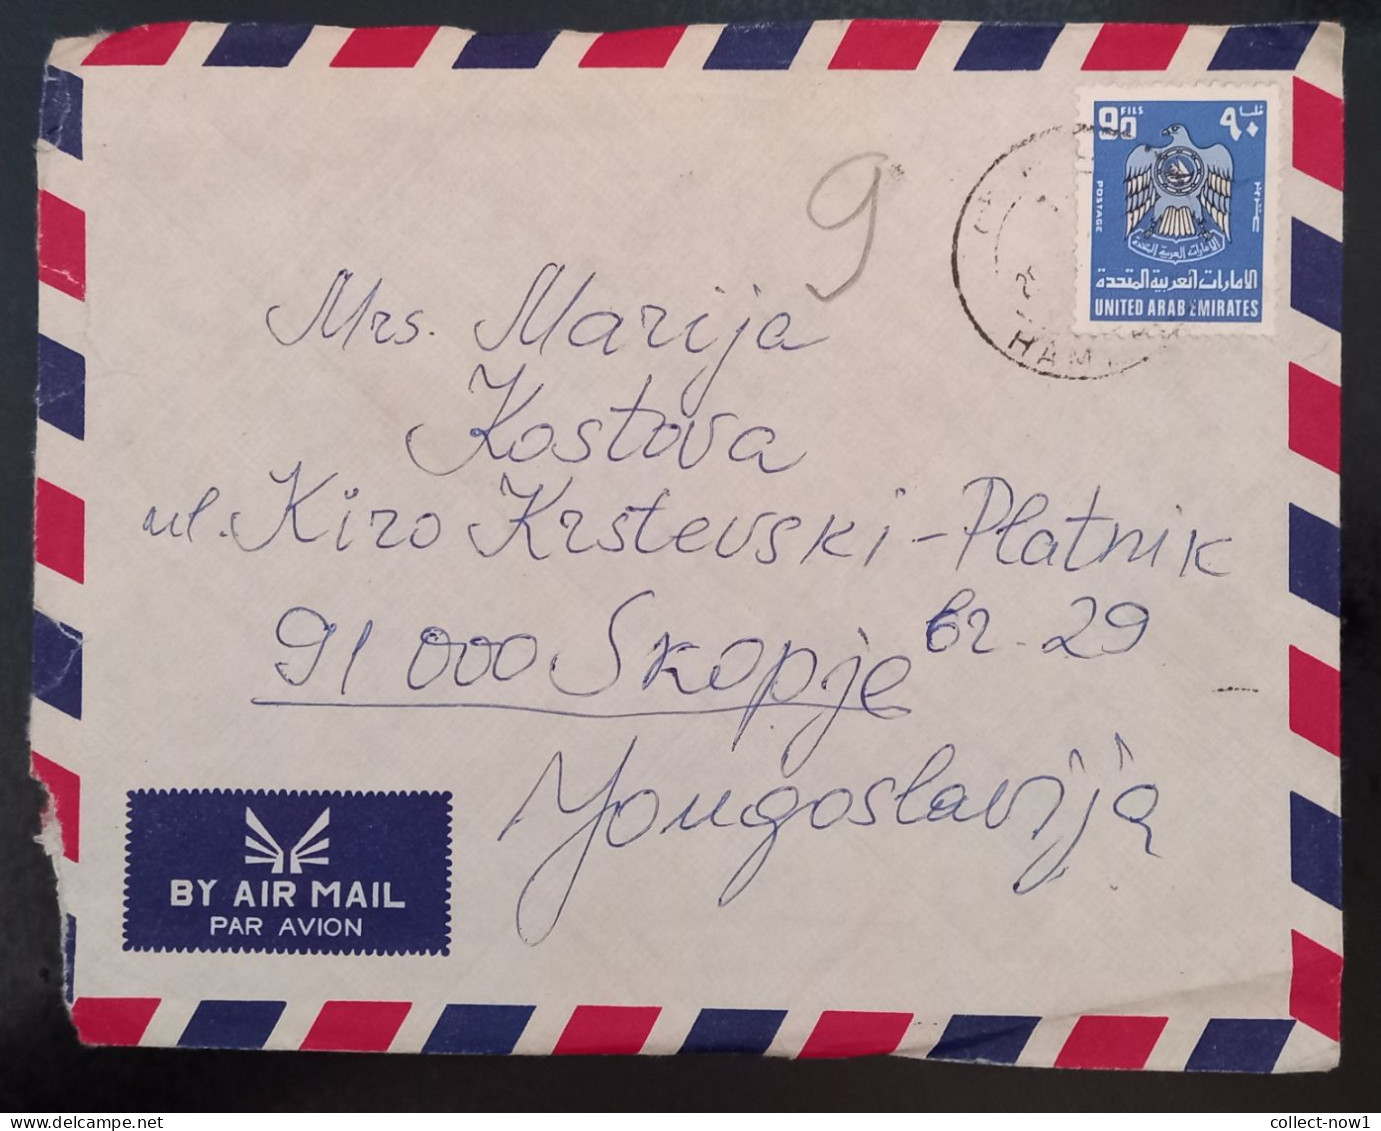 90 FILS
٩٠ فلسا
POSTAGE
بريد
الامارات العربية المتحدة
الامارات العربية المتحدة
UNITED ARAB EMIRATES
HAM
9
Mrs. Marija
Kostova
ul. Kiro Krstevski-Platnik
br. 29
91 000 Skopje
Yougoslavija
BY AIR MAIL
PAR AVION
collect-now1